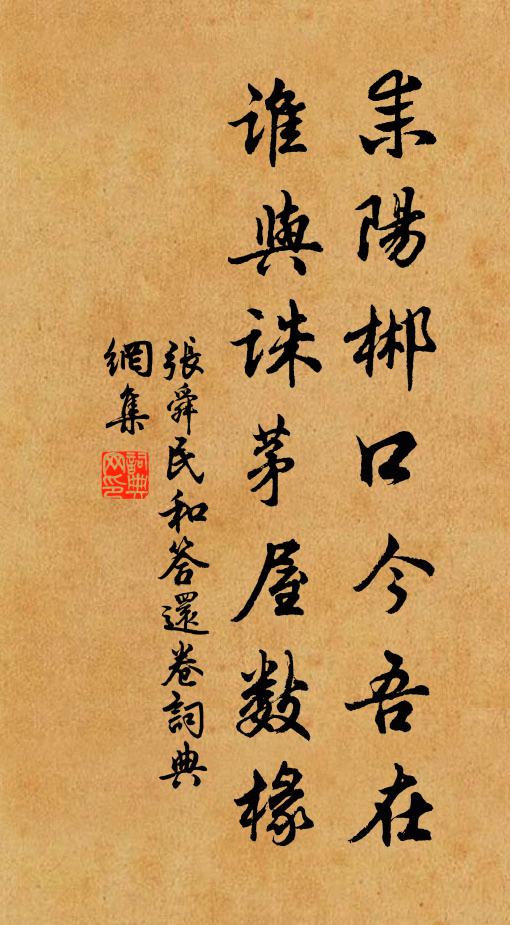 耒陽郴口今吾在
誰與誅茅屋數椽
張舜民和答還卷詞典
網集
詞典網印